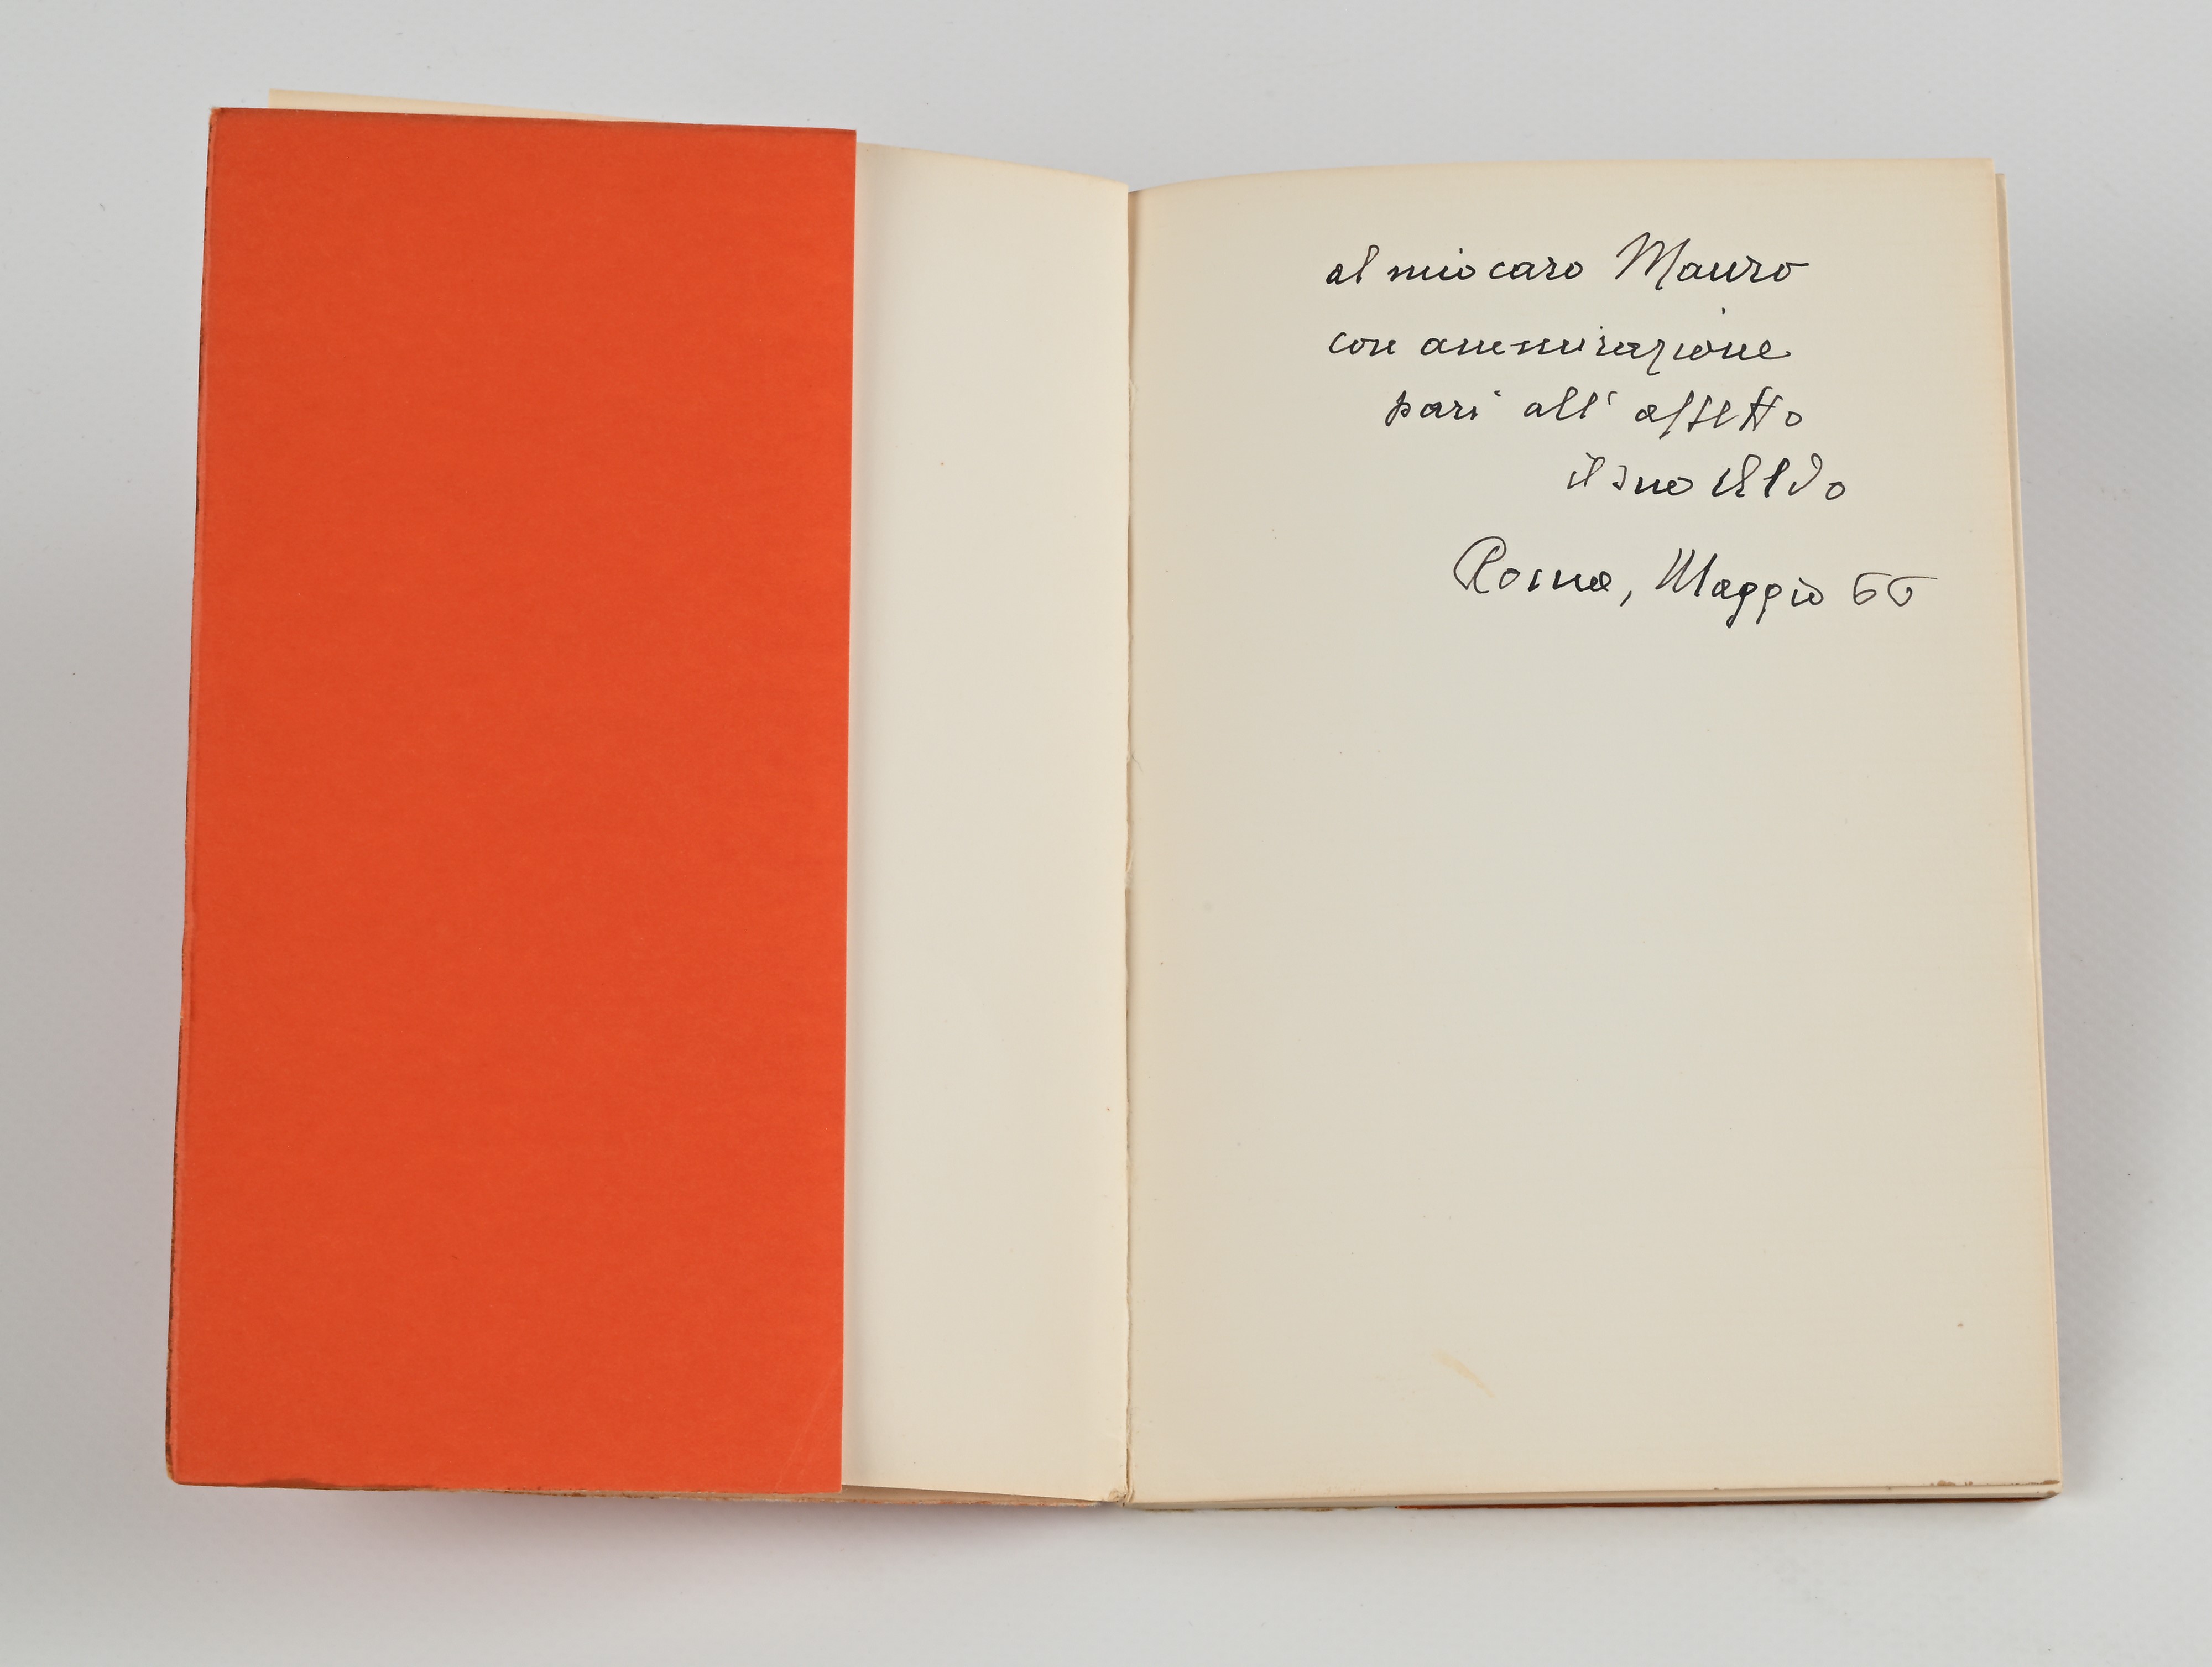 al mio caro Mauro
con ammirazione
pari all' affetto
il suo Aldo
Roma, Maggio 66